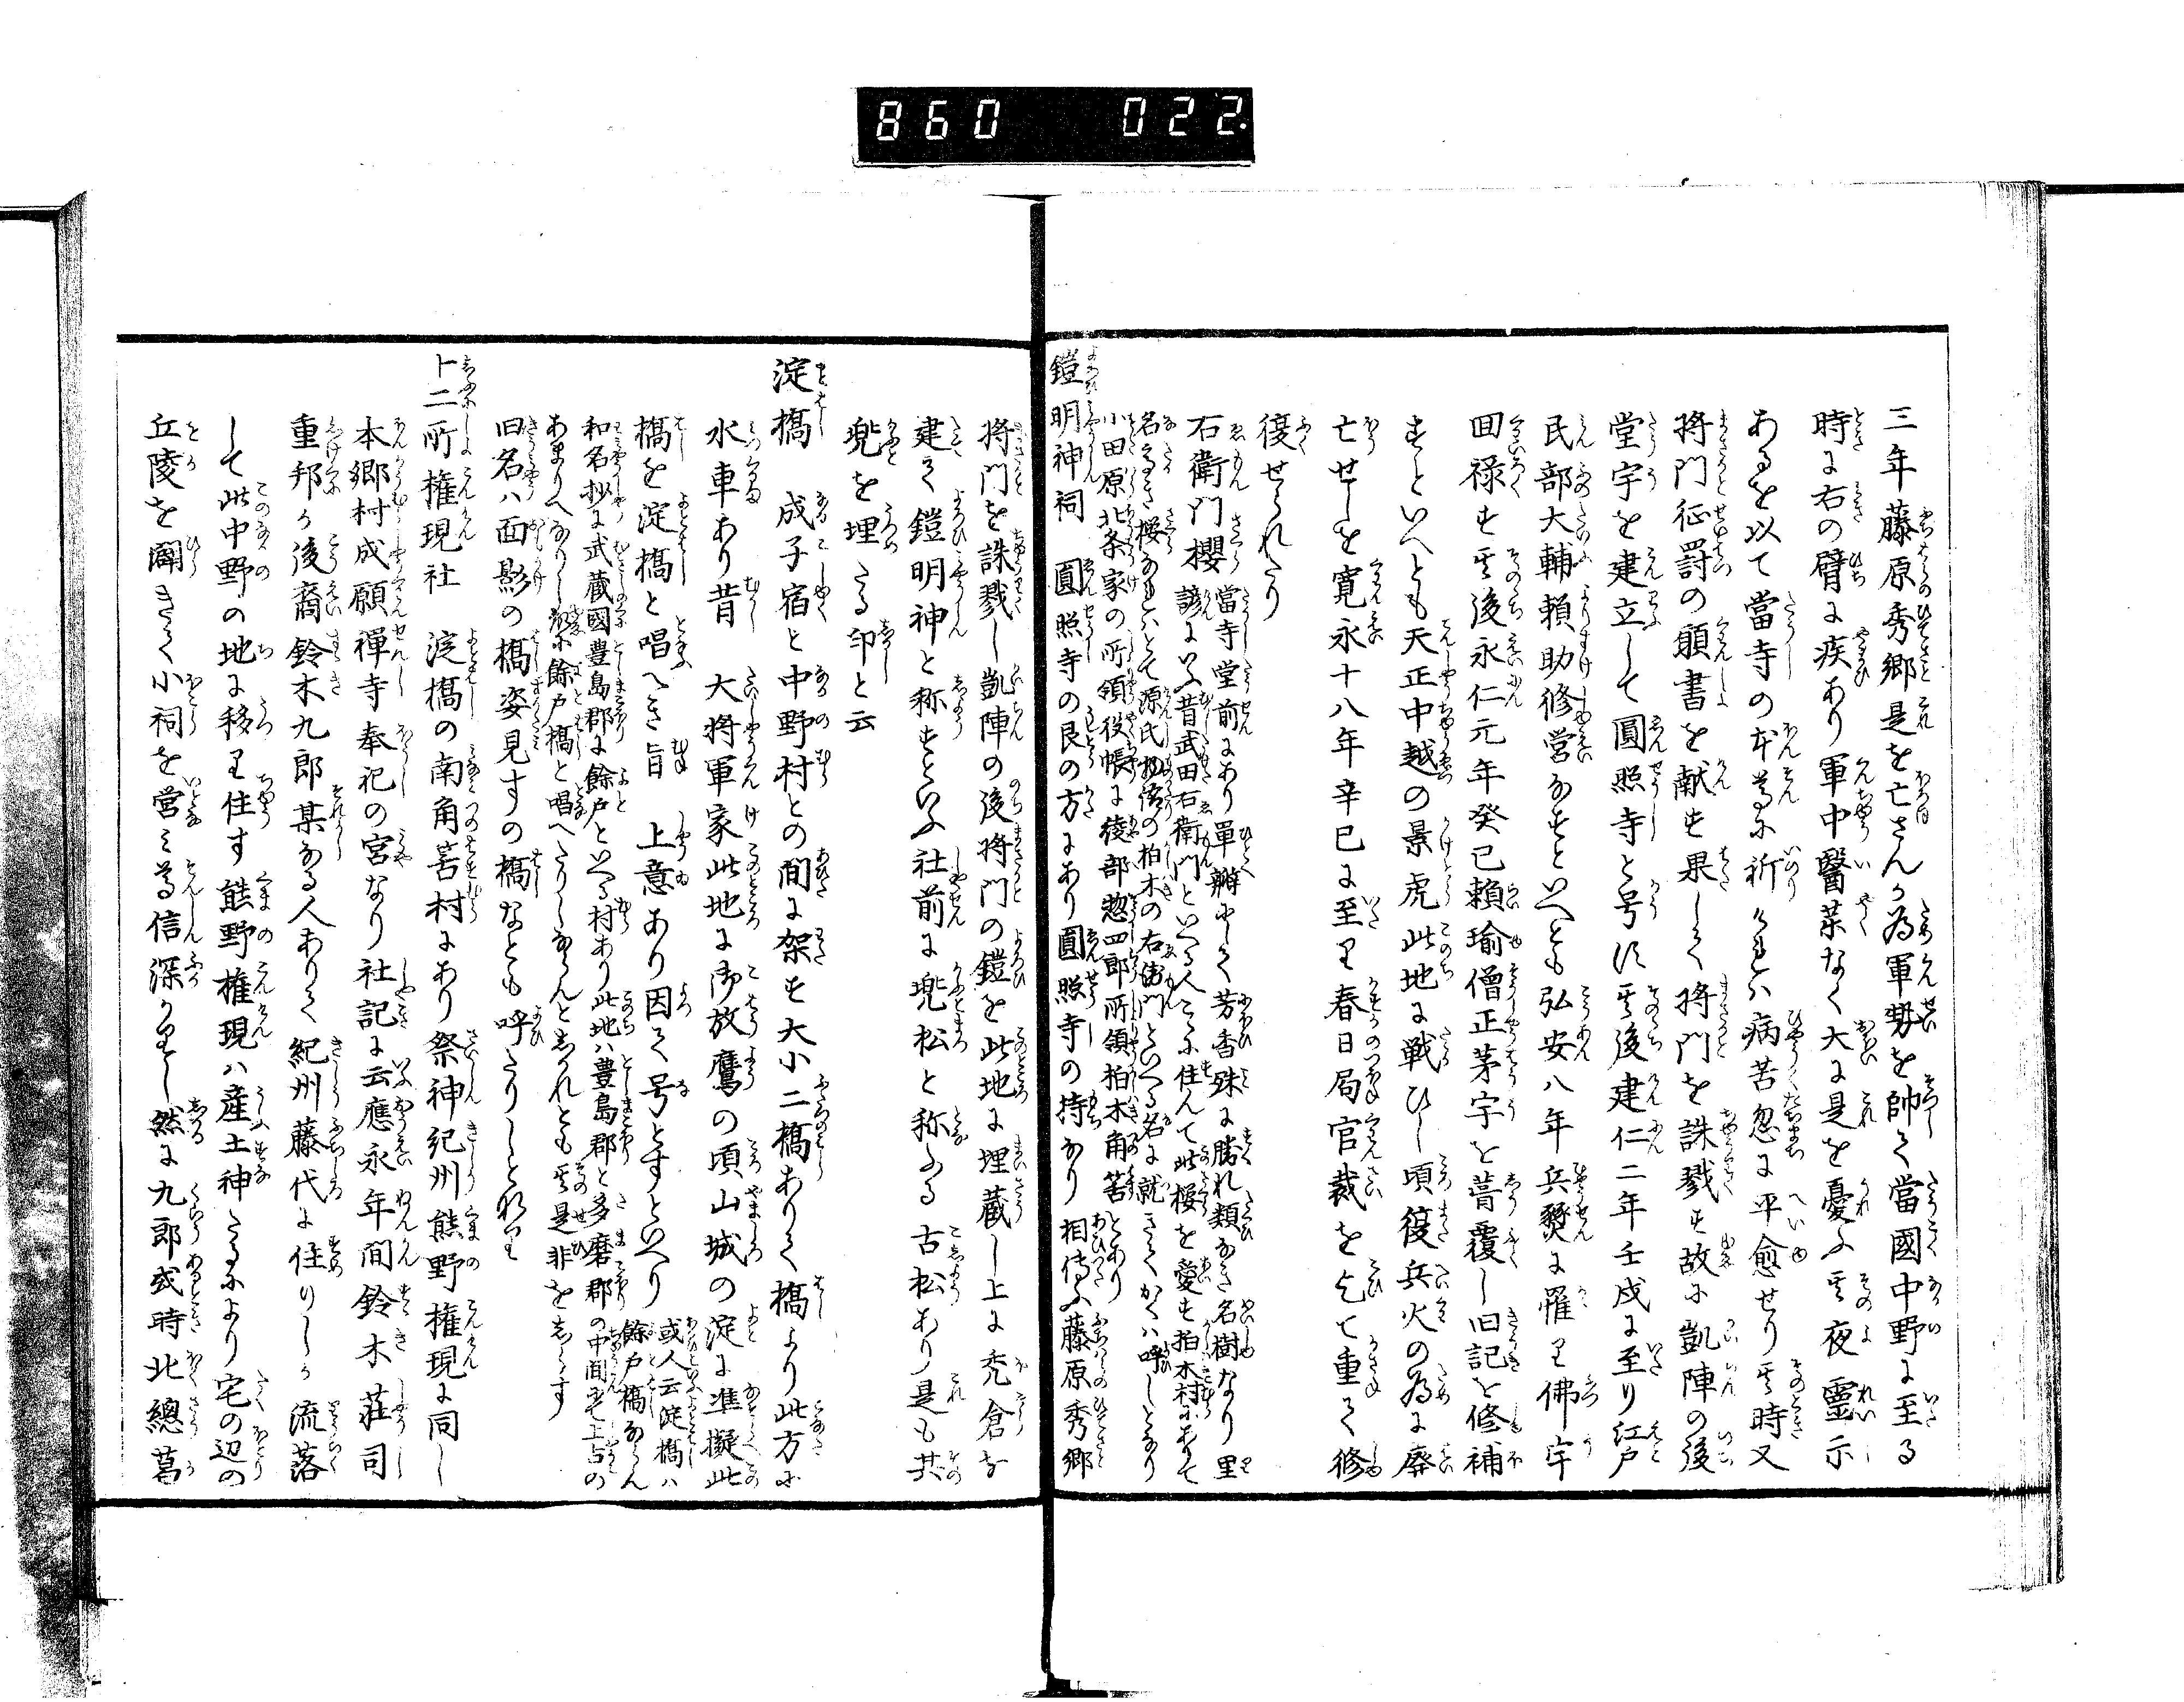 860 022.
三年藤原秀郷是を亡さんか為軍勢を帥て當國中野に至る
時に右の臂に疾あり軍中醫薬なく大に是を憂ふ其夜靈示
あるを以て當寺の本尊に祈けれは病苦忽に平愈せり其時又
将門征罸の願書を献す果して将門を誅戮す故に凱陣の後
堂宇を建立して圓照寺と号く其後建仁二年壬戌に至り江戸
民部大輔頼助修営なすといへとも弘安八年兵燹に罹り佛宇
回禄す其後永仁元年癸已頼瑜僧正茅宇を葺覆し旧記を修補
すといへとも天正中越の景虎此地に戦ひし頃復兵火の為に廃
亡せしを寛永十八年辛已に至り春日局官裁を乞て重て修
復せられたり
右衛門櫻 當寺堂前にあり單瓣にして芳香殊に勝れ類なき名樹なり里
諺にいふ昔武田右衛門といへる人こゝに住んて此桜を愛す柏木村にありて
名高き桜なれはとて源氏物語の柏木の右衛門といへる名に就きてかくは呼しとなり
小田原北条家の所領役帳に綾部惣四郎所領柏木角筈とあり
鎧明神祠 圓照寺の艮の方にあり圓照寺の持なり相傳ふ藤原秀郷
将門を誅戮し凱陣の後将門の鎧を此地に埋蔵し上に禿倉を
建て鎧明神と称すといふ社前に兜松と称ふる古松あり是も其
兜を埋たる印と云
淀橋 成子宿と中野村との間に架す大小二橋ありて橋より此方に
水車あり昔 大将軍家此地に御放鷹の頃山城の淀に準擬此
橋を淀橋と唱へき旨 上意あり因て号とすといへり 或人云淀橋は
餘戸橋ならん
和名抄に武蔵國豊島郡に餘戸といへる村あり此地は豊島郡と多磨郡の中間にて上古の
あまりへなりし故に餘戸橋と唱へたりしならんとしかれとも其是非をしらす
旧名は面影の橋姿見すの橋なとも呼たりしとなり
十二所権現社 淀橋の南角筈村にあり祭神紀州熊野権現に同し
本郷村成願禅寺奉祀の宮なり社記に云應永年間鈴木荘司
重邦か後裔鈴木九郎某なる人ありて紀州藤代に住りしか流落
して此中野の地に移り住す熊野権現は産土神たるにより宅の辺の
丘陵を闢きて小祠を営み尊信深かりし然に九郎或時北總葛